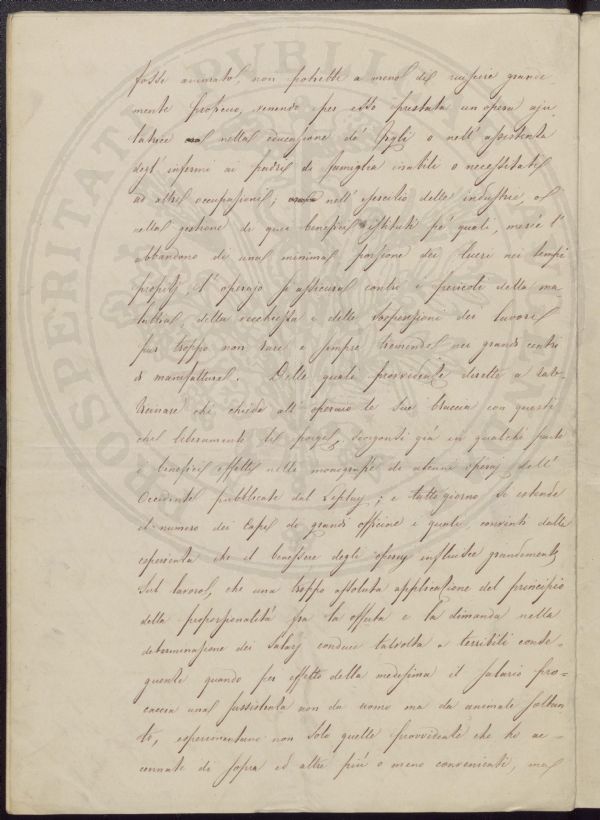 fosse animato, non potrebbe a meno di riuscire grande
mente proficuo, venendo per esso prestata un opera aju
tatrice nella educazione de' figli o nell' assistenza
degl' infermi ai padri di famiglia inabili o necessitati
ad altre occupazioni; nell' esercizio delle industrie, o
nella gestione di quei benefici istituti pe' quali, mercè l'
abbandono di una minima porzione dei lucri nei tempi
propizj l' operajo s' assicura contro i pericoli della ma
lattia, della vecchiezza e delle sospensioni dei lavori
pur troppo non rare e sempre tremende nei grandi centri
di manifatture. Delle quali provvidenze dirette a
chi chiede all' operaio le sue braccia con questi
che liberamente le porge, scorgonsi già in qualche parte
i benefici effetti nelle monografie di alcuni operaj dell'
Occidente pubblicate dal Leplay; e tutto giorno si estende
il numero dei Capi di grandi officine i quali, convinti dalla
esperienza che il benessere degli operaj influisce grandemente
sul lavoro, che una troppo assoluta applicazione del principio
della proporzionalità fra la offerta e la dimanda nella
determinazione dei Salarj conduce talvolta a terribili conse-
guenze quando per effetto della medesima il salario pro-
caccia una sussistenza non da uomo ma da animale soltan
to, esperimentano non solo quelle provvidenze che ho ac-
cennate di sopra ed altre più o meno convenienti, ma